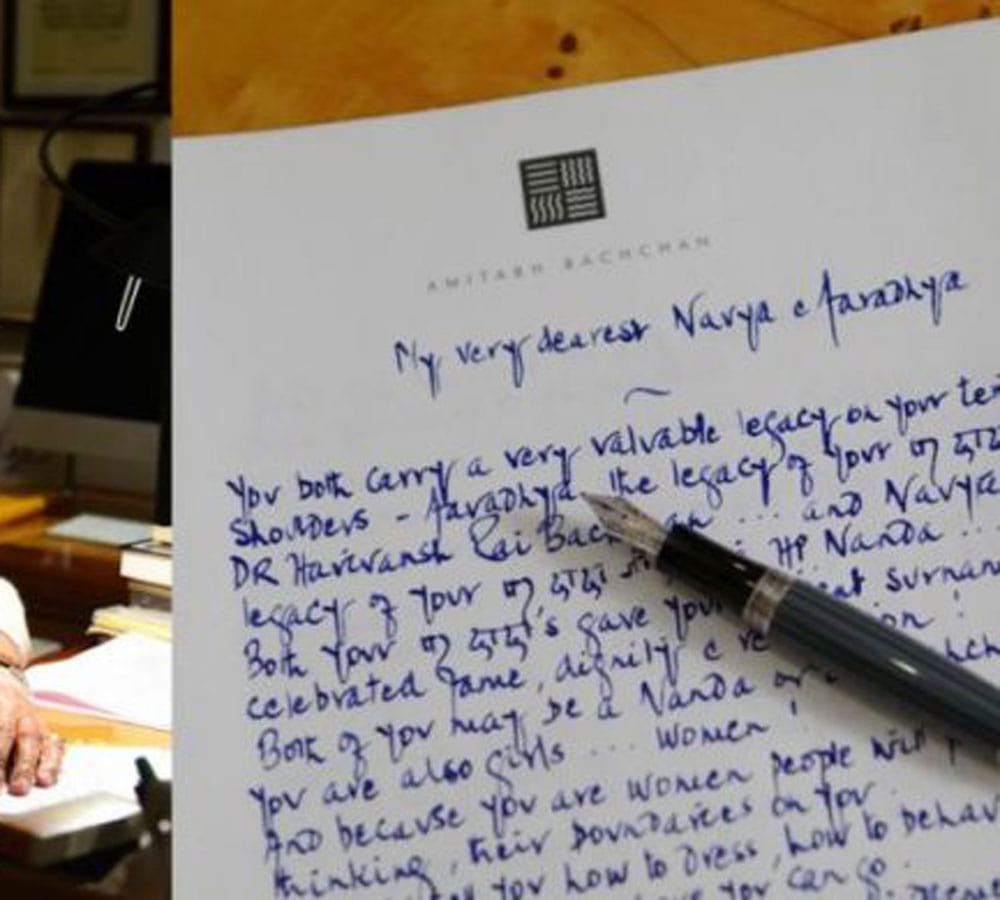 AMITABH BACHCHAN
My very dearest Navya e Aaradhya
You both carry a very valuable legacy on your
shoulders - Aaradhya, the legacy of your
DR Harivansh Rai ... and Navya
legacy of your HP Nanda ...
Both your दादा's gave your
celebrated fame, dignity e
Both of you may be a Nanda or
you are also girls ... women !
And because you are women people will
thinking, their boundaries on you .
you how to dress, how to behav
you can go.